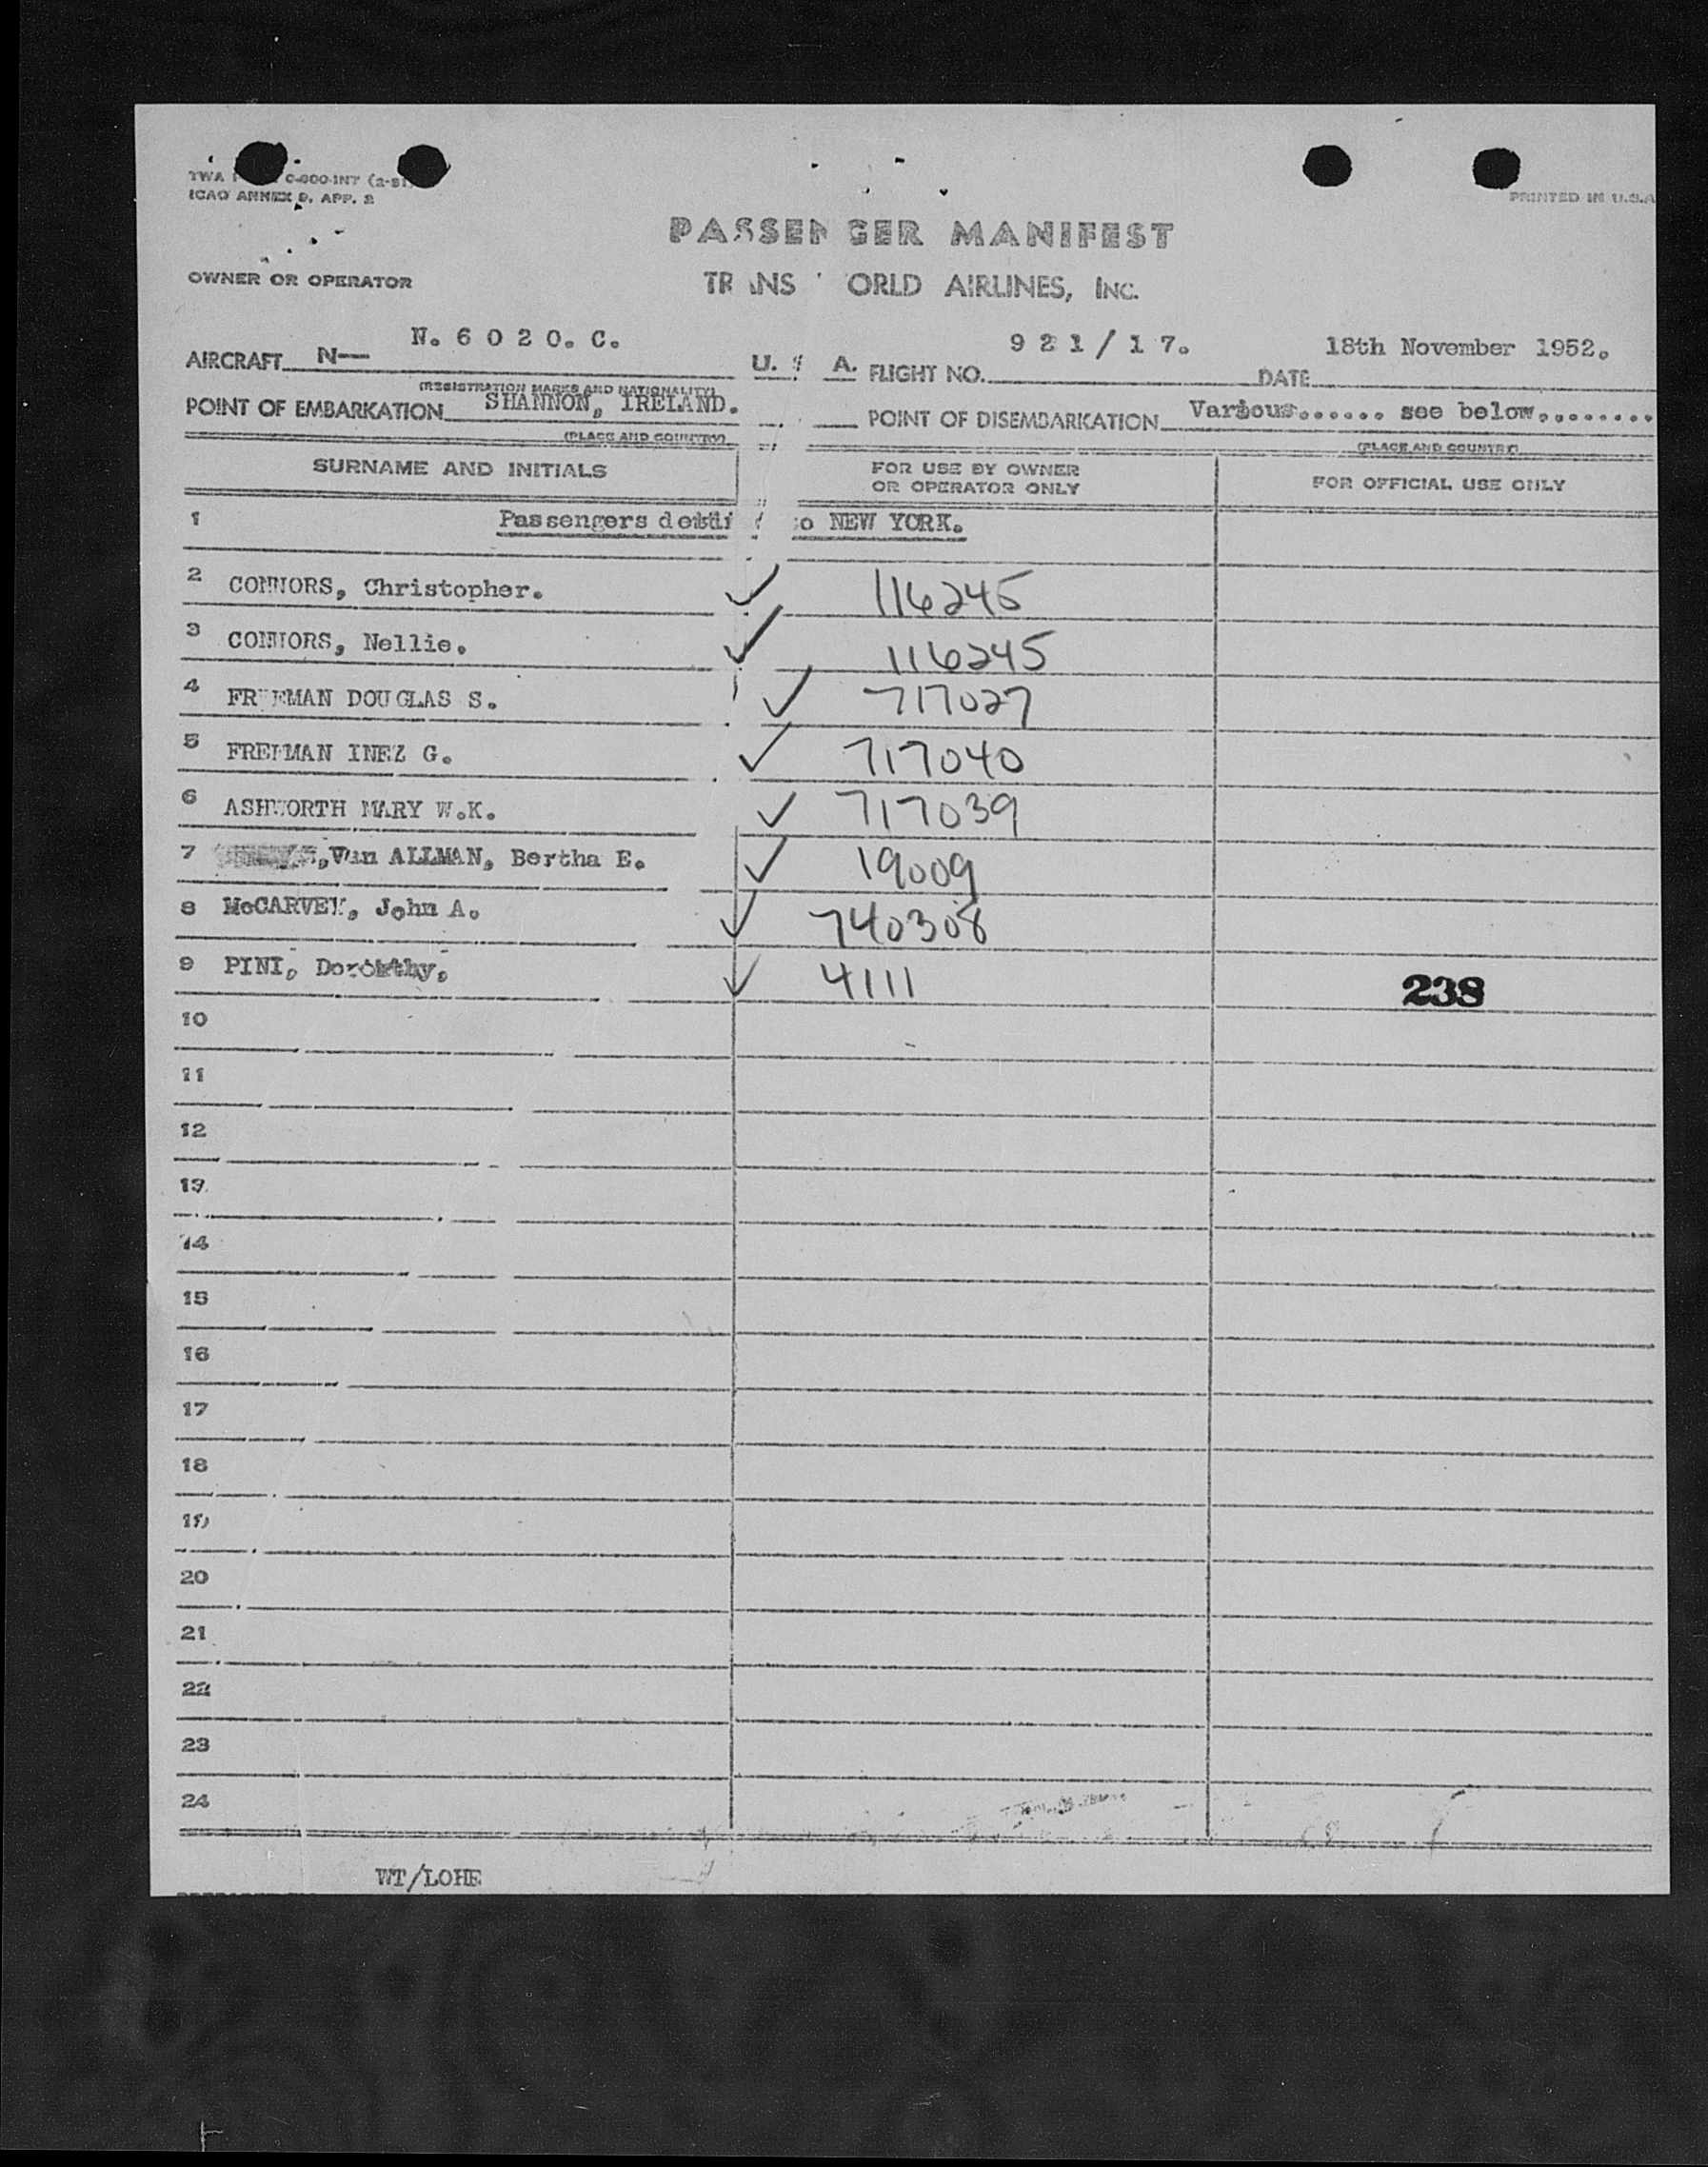 TWA C-600-INT (2-51)
ICAO ANNEX 9, APP. 2
PRINTED IN U.S.A
PASSENGER MANIFEST
OWNER OR OPERATOR TRANS WORLD AIRLINES, INC.
AIRCRAFT N— N. 6 0 2 0. C. U. S. A. FLIGHT NO. 9 2 1 / 1 7. DATE 18th November 1952.
(REGISTRATION MARKS AND NATIONALITY)
POINT OF EMBARKATION SHANNON, IRELAND. POINT OF DISEMBARKATION Various...... see below........
(PLACE AND COUNTRY) (PLACE AND COUNTRY)
SURNAME AND INITIALS FOR USE BY OWNER OR OPERATOR ONLY FOR OFFICIAL USE ONLY
1 Passengers to NEW YORK.
2 CONNORS, Christopher. ✓ 116245
3 CONNORS, Nellie. ✓ 116245
4 FREEMAN DOUGLAS S. ✓ 717027
5 FREEMAN INEZ G. ✓ 717040
6 ASHWORTH MARY W.K. ✓ 717039
7 Van ALLMAN, Bertha E. ✓ 19009
8 McCARVEY, John A. ✓ 740308
9 PINI, Dorothy, ✓ 4111 238
10
11
12
13
14
15
16
17
18
19
20
21
22
23
24
WT/LOHE